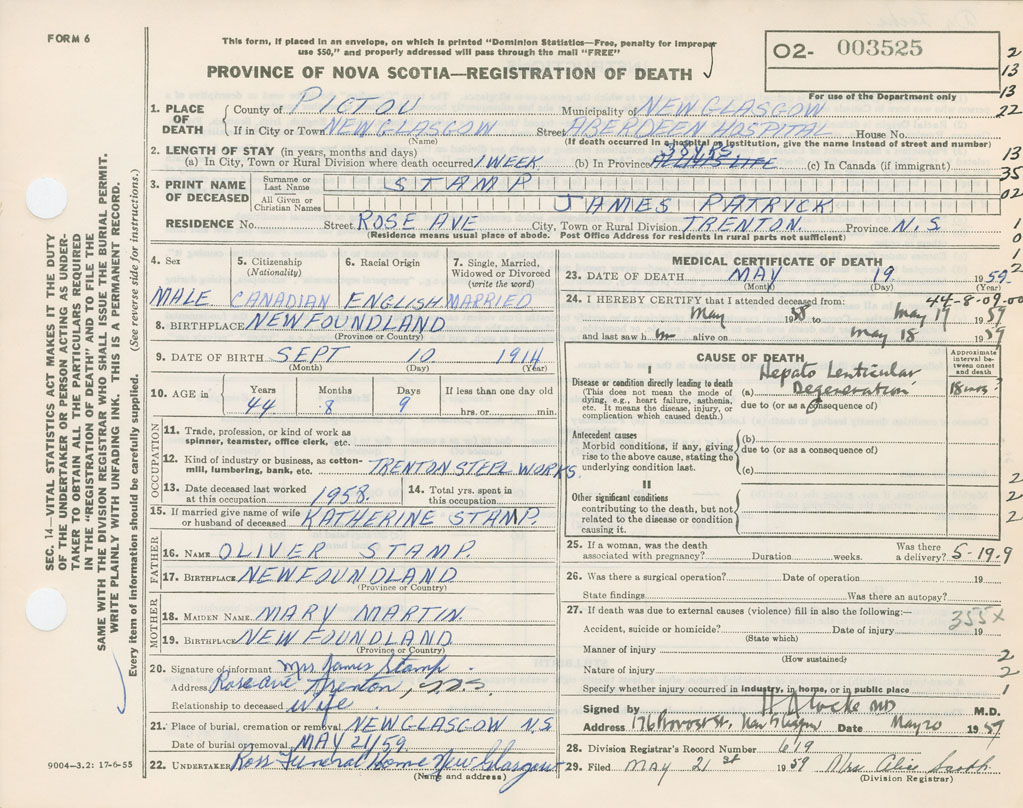 FORM 6
This form, if placed in an envelope, on which is printed "Dominion Statistics—Free, penalty for improper
use $50," and properly addressed will pass through the mail "FREE"
O2- 003525
PROVINCE OF NOVA SCOTIA—REGISTRATION OF DEATH
For use of the Department only
2
13
13
22
13
35
02
1
0
1
2
1. PLACE OF DEATH
County of PICTOU Municipality of NEW GLASGOW
If in City or Town NEW GLASGOW Street ABERDEEN HOSPITAL House No.
(Name) (If death occurred in a hospital or institution, give the name instead of street and number)
2. LENGTH OF STAY (in years, months and days)
(a) In City, Town or Rural Division where death occurred 1 WEEK (b) In Province 38 YRS (c) In Canada (if immigrant)
3. PRINT NAME OF DECEASED
Surname or Last Name STAMP
All Given or Christian Names JAMES PATRICK
RESIDENCE No. Street ROSE AVE City, Town or Rural Division TRENTON. Province N.S
(Residence means usual place of abode. Post Office Address for residents in rural parts not sufficient)
4. Sex
MALE.
5. Citizenship (Nationality)
CANADIAN
6. Racial Origin
ENGLISH
7. Single, Married, Widowed or Divorced (write the word)
MARRIED
8. BIRTHPLACE NEWFOUNDLAND
(Province or Country)
9. DATE OF BIRTH SEPT 10 1914
(Month) (Day) (Year)
10. AGE in
Years Months Days If less than one day old
44 8 9 hrs. or min.
OCCUPATION
11. Trade, profession, or kind of work as
spinner, teamster, office clerk, etc.
12. Kind of industry or business, as cotton-
mill, lumbering, bank, etc. TRENTON STEEL WORKS
13. Date deceased last worked
at this occupation 1958.
14. Total yrs. spent in
this occupation
15. If married give name of wife
or husband of deceased KATHERINE STAMP.
FATHER
16. NAME OLIVER STAMP.
17. BIRTHPLACE NEWFOUNDLAND
(Province or Country)
MOTHER
18. MAIDEN NAME MARY MARTIN.
19. BIRTHPLACE NEWFOUNDLAND
(Province or Country)
20. Signature of informant Mrs James Stamp.
Address Rose ave Trenton, N.S.
Relationship to deceased wife
21. Place of burial, cremation or removal NEW GLASGOW N.S
Date of burial or removal MAY 21/59.
22. UNDERTAKER Ross Funeral Home New Glasgow
(Name and address)
MEDICAL CERTIFICATE OF DEATH
23. DATE OF DEATH MAY 19 1959.
(Month) (Day) (Year)
44-8-09-00
24. I HEREBY CERTIFY that I attended deceased from:
May 1958 to May 19 1959
and last saw h m alive on May 18 1959
CAUSE OF DEATH
Approximate interval between onset and death
I
Disease or condition directly leading to death
(This does not mean the mode of
dying, e.g., heart failure, asthenia,
etc. It means the disease, injury, or
complication which caused death.)
(a) Hepato Lenticular
Degeneration 18 mos?
due to (or as a consequence of)
Antecedent causes
Morbid conditions, if any, giving
rise to the above cause, stating the
underlying condition last.
(b)
due to (or as a consequence of)
(c)
2
II
Other significant conditions
contributing to the death, but not
related to the disease or condition
causing it.
2
2
25. If a woman, was the death
associated with pregnancy? Duration weeks. Was there
a delivery? 5-19-9
26. Was there a surgical operation? Date of operation 19
State findings Was there an autopsy?
27. If death was due to external causes (violence) fill in also the following:—
355x
Accident, suicide or homicide? Date of injury 19
(State which)
Manner of injury 2
(How sustained)
Nature of injury 2
Specify whether injury occurred in industry, in home, or in public place 1
Signed by Locke MD M.D.
Address 176 Provost St. New Glasgow Date May 20 1959
28. Division Registrar's Record Number 619
29. Filed MAY 21st 1959 Mrs Alice
(Division Registrar)
9004-3.2: 17-6-55
SEC. 14—VITAL STATISTICS ACT MAKES IT THE DUTY
OF THE UNDERTAKER OR PERSON ACTING AS UNDER-
TAKER TO OBTAIN ALL THE PARTICULARS REQUIRED
IN THE "REGISTRATION OF DEATH" AND TO FILE THE
SAME WITH THE DIVISION REGISTRAR WHO SHALL ISSUE THE BURIAL PERMIT.
WRITE PLAINLY WITH UNFADING INK. THIS IS A PERMANENT RECORD.
Every item of information should be carefully supplied. (See reverse side for instructions.)